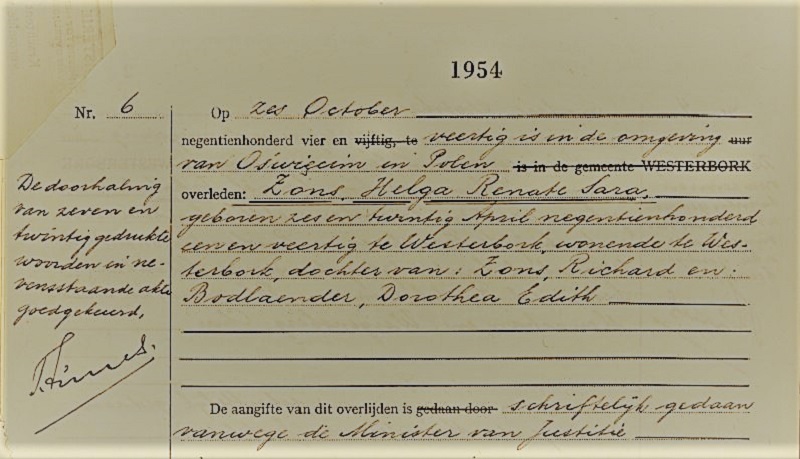 1954
Nr. 6
Op zes October
negentienhonderd vier en vijftig, te veertig is in de omgeving uur
van Oświęcim in Polen is in de gemeente WESTERBORK
overleden: Zons, Helga Renate Sara,
geboren zes en twintig April negentienhonderd
een en veertig te Westerbork, wonende te Wes-
terbork, dochter van: Zons, Richard en
Bodlaender, Dorothea Edith
De aangifte van dit overlijden is gedaan door schriftelijk gedaan
vanwege de Minister van Justitie
De doorhaling
van zeven en
twintig gedrukte
woorden in ne-
vensstaande akte
goedgekeurd,